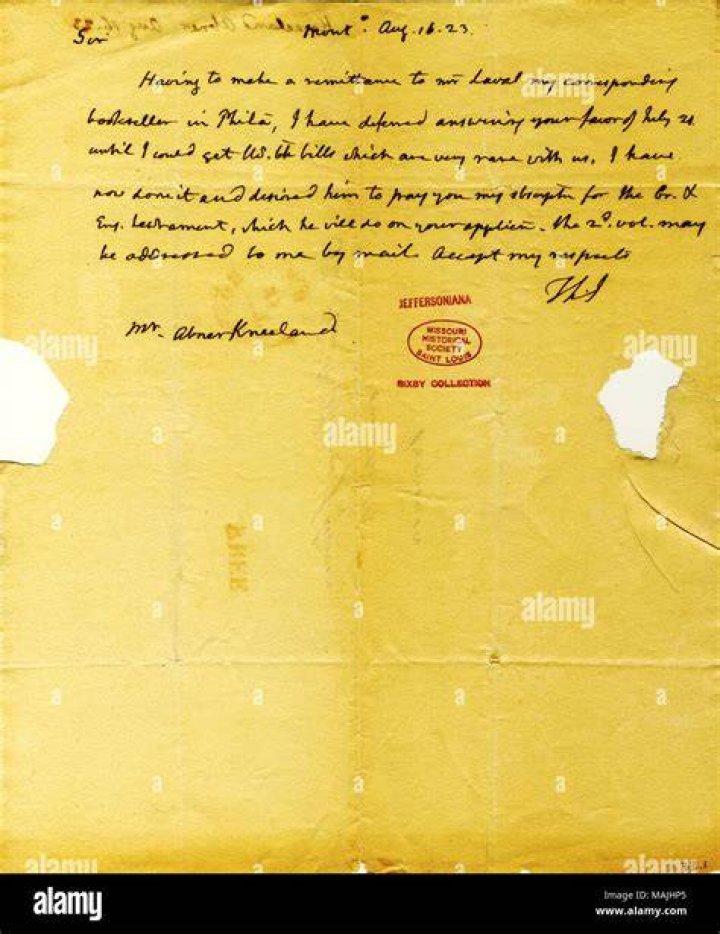 Kneeland Abner Aug 16. 23
Sir Mont.º Aug. 16. 23.
Having to make a remittance to mr Laval my corresponding
bookseller in Phila, I have deferred answering your favor of July 21
until I could get US. bk bills which are very rare with us. I have
now done it and desired him to pay you my subscriptn for the Gr. &
Eng. testament, which he will do on your applicn. the 2d. vol. may
be addressed to me by mail. Accept my respects
Th J
Mr. Abner Kneeland
JEFFERSONIANA
MISSOURI
HISTORICAL
SOCIETY
SAINT LOUIS
BIXBY COLLECTION
FREE
alamy
Image ID: MAJHP5
www.alamy.com